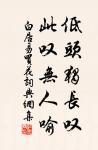 低頭獨長叹
此叹無人喻
白居易買花詞典網集